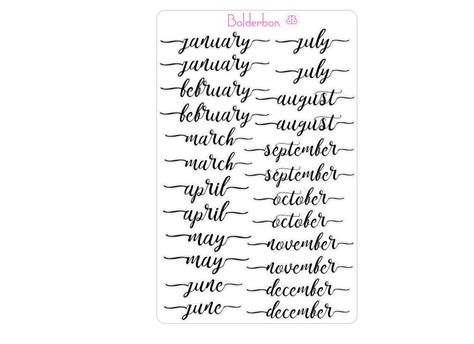 Bolderbon BB
january
january
february
february
march
march
april
april
may
may
june
june
july
july
august
august
september
september
october
october
november
november
december
december